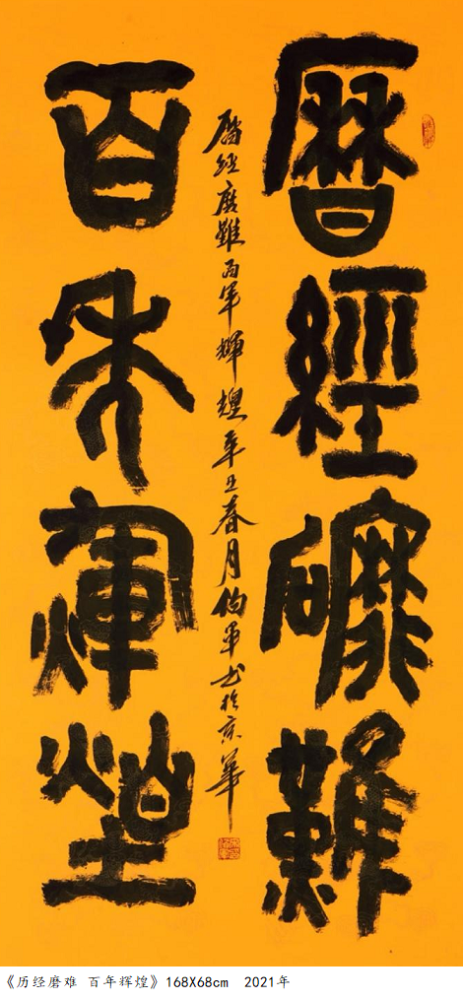 曆經磨難
百年煇煌
曆經磨難百年輝煌辛丑春月军书於京華
《历经磨难 百年辉煌》168X68cm 2021年